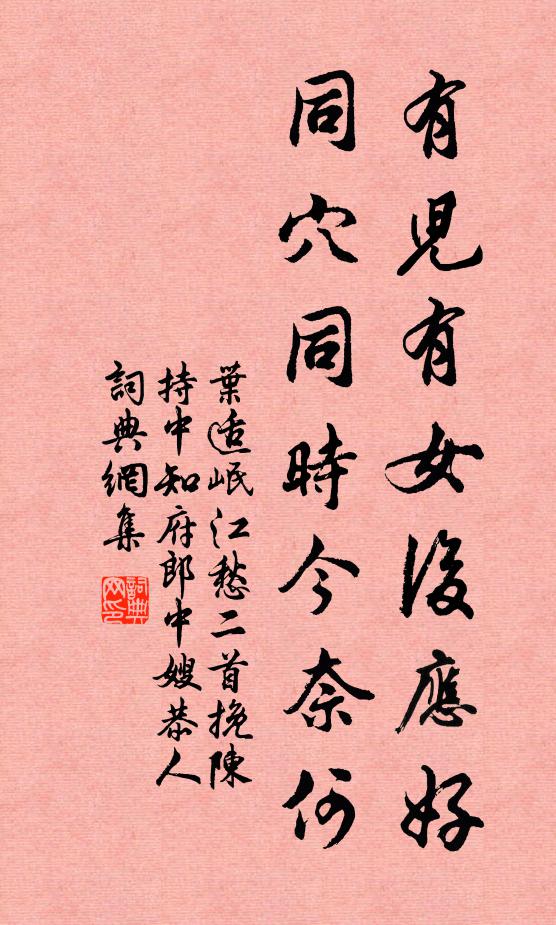 有兒有女後應好
同穴同時今奈何
葉适岷江愁二首挽陳
持中知府郎中嫂恭人
詞典網集
詞典網印